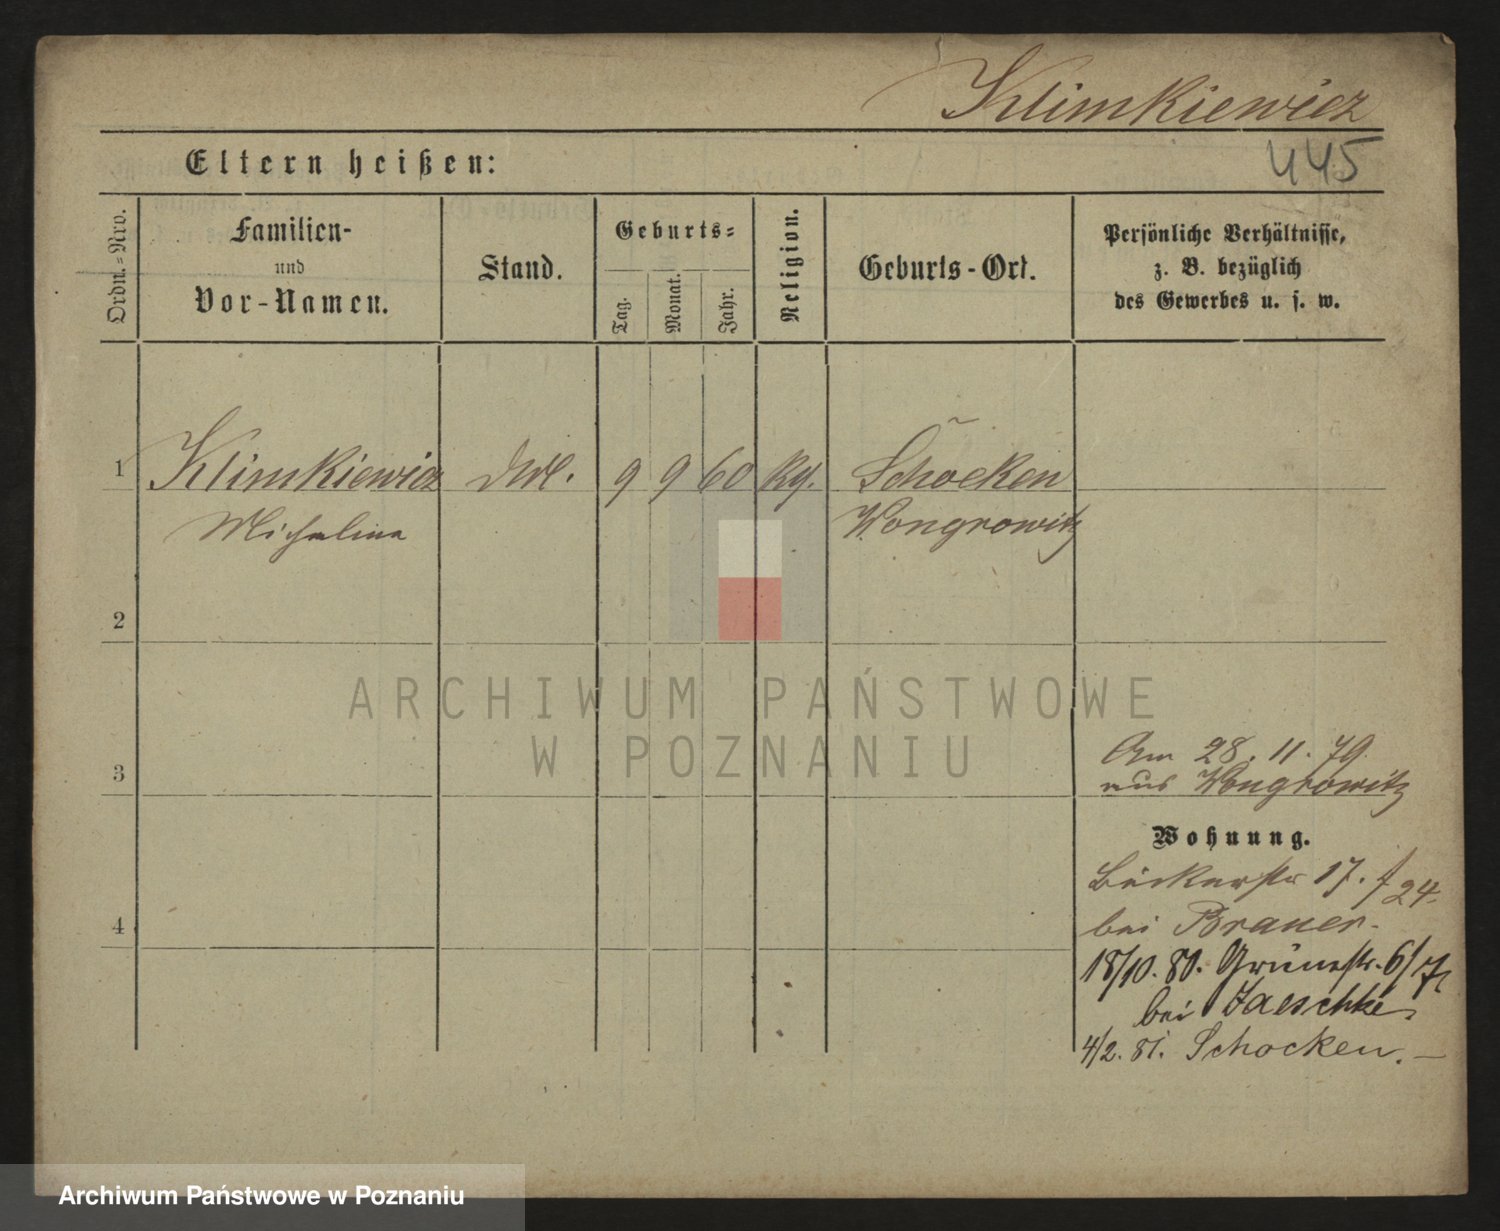 Klimkiewicz
445
Eltern heißen:
Ordn.-Nro.
Familien-
und
Vor-Namen.
Stand.
Geburts-
Tag.
Monat.
Jahr.
Religion.
Geburts-Ort.
Persönliche Verhältnisse,
z. B. bezüglich
des Gewerbes u. s. w.
1 Klimkiewicz 9 9 60 Schocken
Michalina Wongrowitz
2
ARCHIWUM PAŃSTWOWE
W POZNANIU
Am 28. 11. 79
3 aus Wongrowitz
Wohnung.
Bäckerstr 17. f 24.
4 bei Brauer.
18/10. 80. Grünestr. 6/7
bei Jaeschke.
4/2. 81. Schocken. —
Archiwum Państwowe w Poznaniu